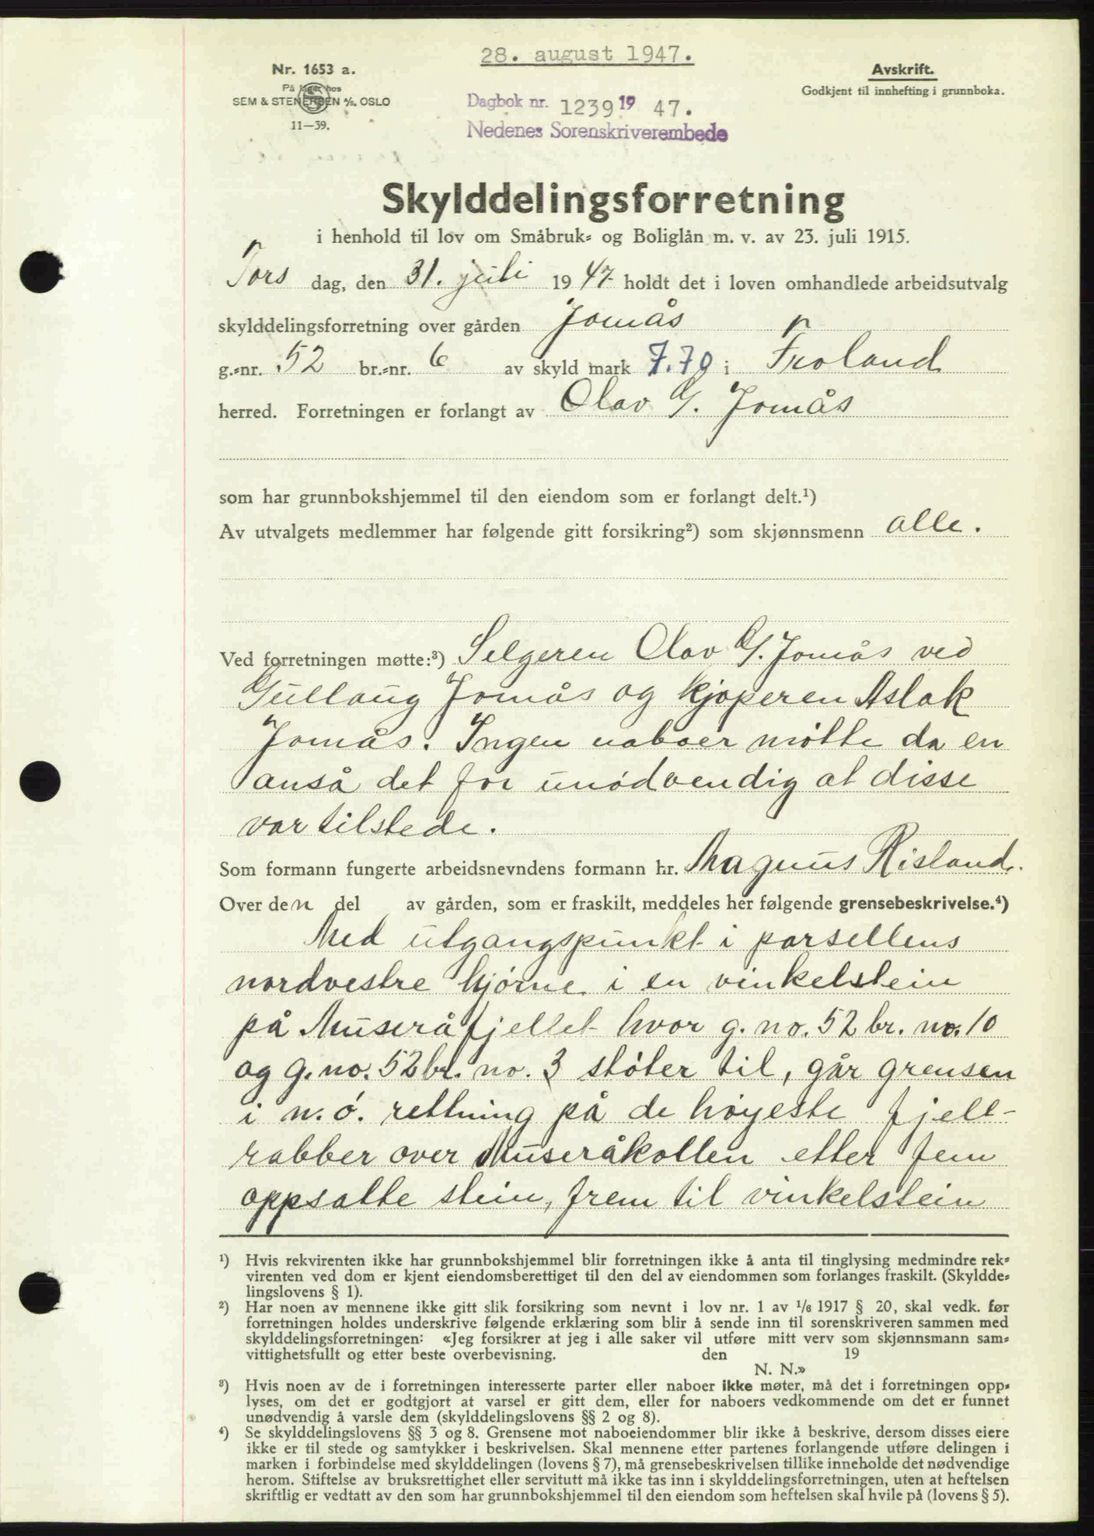 28. august 1947.
Nr. 1653 a.
På lager hos
SEM & STENERSEN A/S. OSLO
11—39.
Dagbok nr. 1239 19 47.
Nedenes Sorenskriverembede
Avskrift.
Godkjent til innhefting i grunnboka.
Skylddelingsforretning
i henhold til lov om Småbruk- og Boliglån m. v. av 23. juli 1915.
Tors dag, den 31. juli 1947 holdt det i loven omhandlede arbeidsutvalg
skylddelingsforretning over gården Jomås
g.-nr. 52 br.-nr. 6 av skyld mark 7.70 i Froland
herred. Forretningen er forlangt av Olav G. Jomås
som har grunnbokshjemmel til den eiendom som er forlangt delt.¹)
Av utvalgets medlemmer har følgende gitt forsikring²) som skjønnsmenn alle.
Ved forretningen møtte:³) Selgeren Olav G. Jomås ved
Gullaug Jomås og kjøperen Aslak
Jomås. Ingen naboer møtte da en
anså det for unødvendig at disse
var tilstede.
Som formann fungerte arbeidsnevndens formann hr. Magnus Risland.
Over den del av gården, som er fraskilt, meddeles her følgende grensebeskrivelse.⁴)
Med utgangspunkt i parsellens
nordvestre hjørne i en vinkelstein
på Museråfjellet hvor g. no. 52 br. no. 10
og g. no. 52 br. no. 3 støter til, går grensen
i n.ø. rettning på de høyeste fjell-
rabber over Museråkollen etter fem
oppsatte stein, frem til vinkelstein
¹) Hvis rekvirenten ikke har grunnbokshjemmel blir forretningen ikke å anta til tinglysing medmindre rek-
virenten ved dom er kjent eiendomsberettiget til den del av eiendommen som forlanges fraskilt. (Skyldde-
lingslovens § 1).
²) Har noen av mennene ikke gitt slik forsikring som nevnt i lov nr. 1 av 1/6 1917 § 20, skal vedk. før
forretningen holdes underskrive følgende erklæring som blir å sende inn til sorenskriveren sammen med
skylddelingsforretningen: «Jeg forsikrer at jeg i alle saker vil utføre mitt verv som skjønnsmann sam-
vittighetsfullt og etter beste overbevisning. den 19
N. N.»
³) Hvis noen av de i forretningen interesserte parter eller naboer ikke møter, må det i forretningen opp-
lyses, om det er godtgjort at varsel er gitt dem, eller for naboers vedkommende om det er funnet
unødvendig å varsle dem (skylddelingslovens §§ 2 og 8).
⁴) Se skylddelingslovens §§ 3 og 8. Grensene mot naboeiendommer blir ikke å beskrive, dersom disses eiere
ikke er til stede og samtykker i beskrivelsen. Skal mennene etter partenes forlangende utføre delingen i
marken i forbindelse med skylddelingen (lovens § 7), må grensebeskrivelsen tillike inneholde det nødvendige
herom. Stiftelse av bruksrettighet eller servitutt må ikke tas inn i skylddelingsforretningen, uten at heftelsen
skriftlig er vedtatt av den som har grunnbokshjemmel til den eiendom som heftelsen skal hvile på (lovens § 5).